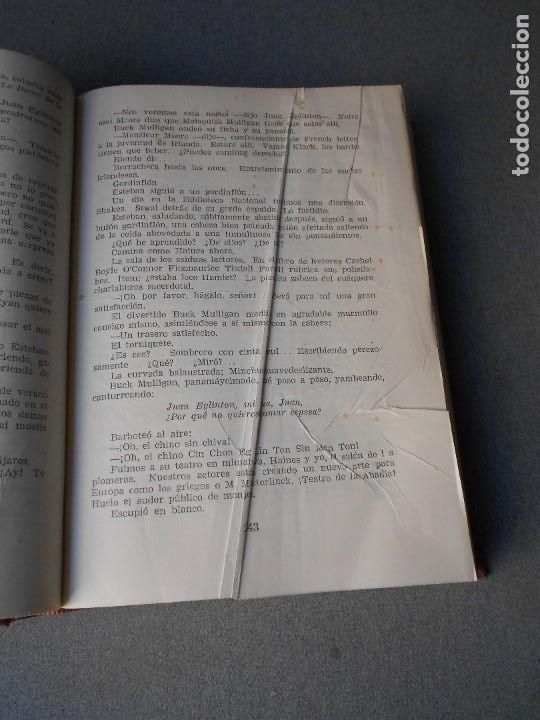 todocoleccion
todocoleccion.net
s, estudia
La Dama de la
Juan Eglinton
mostrarnos
Tomarte
gos platónicos
de esperar
cribe
está un
pre encontré
ord, creo
rd. Se va
arle que
s su
Es decir,
ada a creer?
piezas de
yan quiere
sar el mal
o Esteban.
riendo, ga-
riendo de
de verano
nado en el
os damas
el muelle
jaros.
¡Ay! Te
—Nos veremos esta noche —dijo Juan Eglinton—. Notre
ami Moore dice que Malaquías Mulligan tiene que estar allí.
Buck Mulligan ondeó su ficha y su panamá.
—Monsieur Moore —dijo—, conferenciante de French letters
a la juventud de Irlanda. Estaré allí. Vamos, Kinch, los bardos
tienen que beber. ¿Puedes caminar derecho?
Riendo él...
Borrachera hasta las once. Entretenimiento de las noches
irlandesas.
Gordinflón
Esteban siguió a un gordinflón...
Un día en la Biblioteca Nacional tuvimos una discusión.
Shakes. Seguí detrás de su gorda espalda. Lo fastidio.
Esteban, saludando, súbitamente abatido, después, siguió a un
bufón gordinflón, una cabeza bien peinada, recién afeitada saliendo
de la celda abovedada a una tumultuosa luz sin pensamientos.
¿Qué he aprendido? ¿De ellos? ¿De mí?
Camina como Haines ahora.
La sala de los asiduos lectores. En el libro de lectores Cashel
Boyle O'Connor Fitzmaurice Tisdall Farrell rubrica sus polisíla-
bos. Item: ¿estaba loco Hamlet? La piadosa zabeca del cuáquero
charlalibros sacerdotal.
—¡Oh por favor, hágalo, señor! Será para mí una gran
satisfacción.
El divertido Buck Mulligan meditó en agradable murmullo
consigo mismo, asintiéndose a sí mismo con la cabeza:
—Un trasero satisfecho.
El torniquete.
¿Es eso? Sombrero con cinta azul... Escribiendo perezo-
samente ¿Qué? ¿Miró?...
La curvada balaustrada; Minchusuavedeslizante.
Buck Mulligan, panamáyelmado, iba paso a paso, yambeando,
canturreando:
Juan Eglinton, mi ya, Juan,
¿Por qué no quieres tomar esposa?
Barboteó al aire:
—¡Oh, el chino sin chiva!
—¡Oh, el chino Cin Chon Eg Lin Ton Sin Men Ton!
Fuimos a su teatro en miniatura, Haines y yo, la salón de los
plomeros. Nuestros actores están creando un nuevo arte para
Europa como los griegos o M. Maeterlinck. ¡Teatro de la Abadía!
Huelo el sudor público de monje.
Escupió en blanco.
243